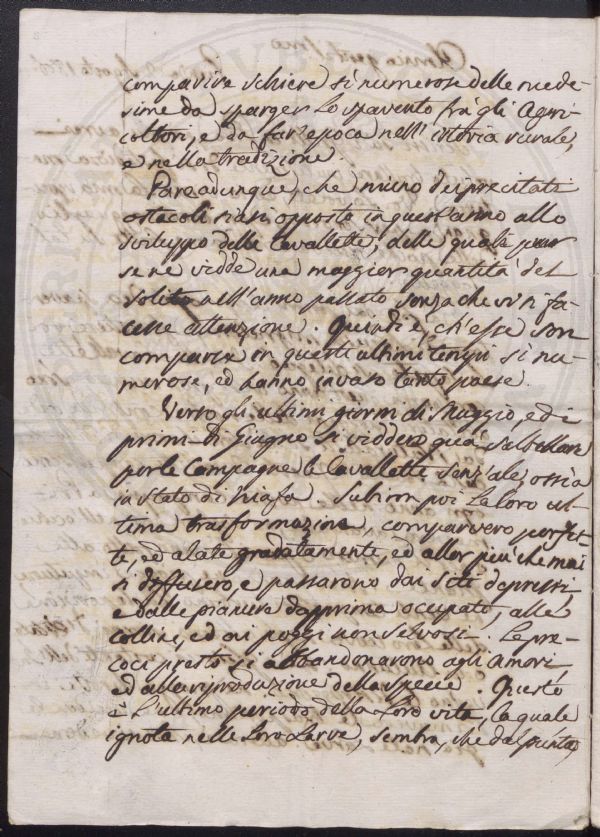 comparire schiere si numerose delle mede-
sime da sparger lo spavento frà gli Agri-
coltori, e da far epoca nell' istoria rurale,
e nella tradizione.
Pare adunque, che niuno dei precitati
ostacoli siasi opposto in quest'anno allo
sviluppo delle Cavallette, delle quali pur
se ne vidde una maggior quantità del
solito nell'anno passato senza che vi si fa-
cesse attenzione. Quindi è, ch'esse son
comparse in questi ultimi tempi si nu-
merose, ed hanno invaso tanto paese.
Verso gli ultimi giorni di Maggio, ed i
primi di Giugno si viddero quà saltellare
per le Campagne le Cavallette senz'ale, ossia
in stato di Ninfa. Subìron poi la loro ul-
tima trasformazione, comparvero perfet-
te, ed alate gradatamente, ed allor più che mai
si diffusero, e passarono dai siti depressi,
e dalle pianure dapprima occupate, alle
colline, ed ai poggi non selvosi. Le pre-
coci presto si abbandonarono agli amori,
ed alla riproduzione della specie. Questo
è l'ultimo periodo della loro vita, la quale
ignota nelle loro Larve, sembra, che dal punto,